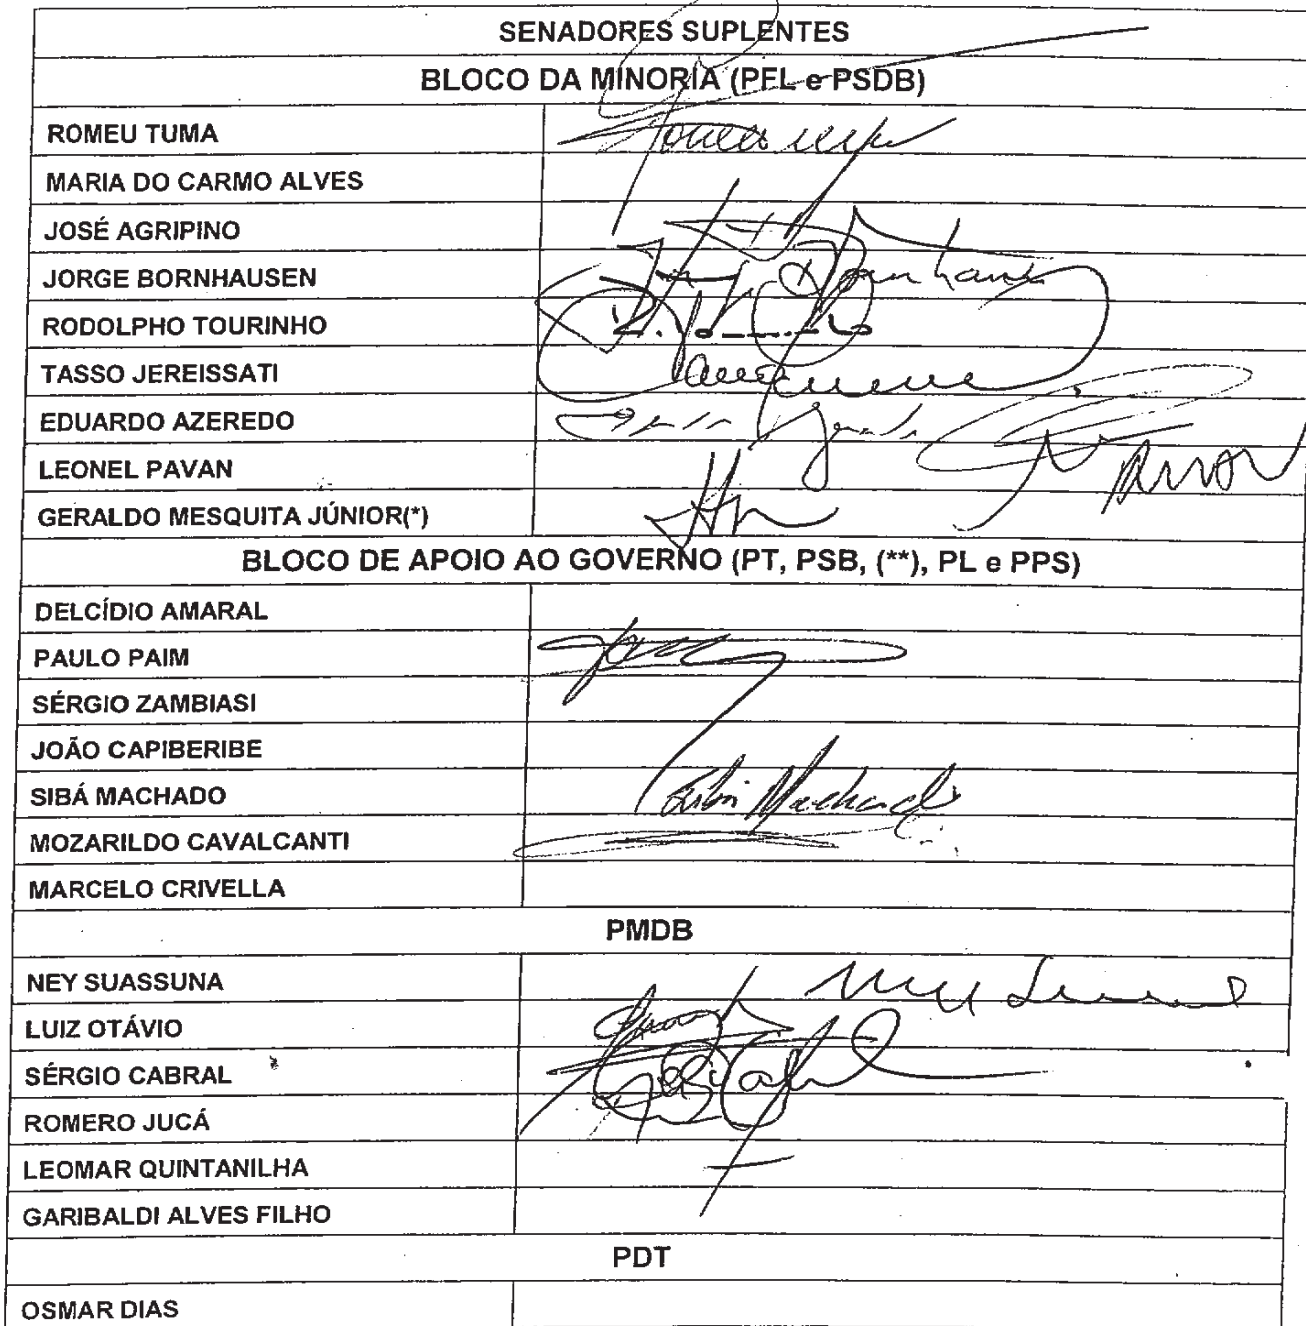 SENADORES SUPLENTES
BLOCO DA MINORIA (PFL e PSDB)
ROMEU TUMA
MARIA DO CARMO ALVES
JOSÉ AGRIPINO
JORGE BORNHAUSEN
RODOLPHO TOURINHO
TASSO JEREISSATI
EDUARDO AZEREDO
LEONEL PAVAN
GERALDO MESQUITA JÚNIOR(*)
BLOCO DE APOIO AO GOVERNO (PT, PSB, (**), PL e PPS)
DELCÍDIO AMARAL
PAULO PAIM
SÉRGIO ZAMBIASI
JOÃO CAPIBERIBE
SIBÁ MACHADO Sibá Machado
MOZARILDO CAVALCANTI
MARCELO CRIVELLA
PMDB
NEY SUASSUNA
LUIZ OTÁVIO
SÉRGIO CABRAL
ROMERO JUCÁ
LEOMAR QUINTANILHA
GARIBALDI ALVES FILHO
PDT
OSMAR DIAS